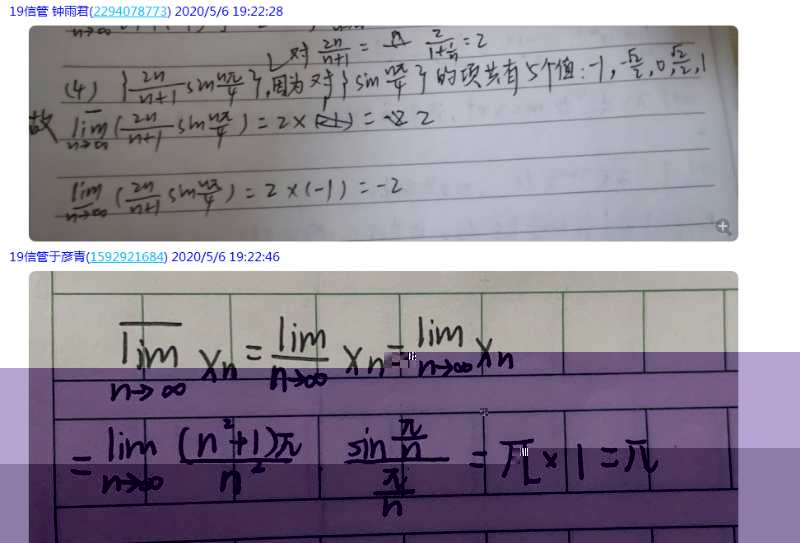 19信管 钟雨君(2294078773) 2020/5/6 19:22:28
对 2n/n+1 = 2/1+1/n = 2
(4) {2n/n+1 sin nπ/4}, 因为对{sin nπ/4}的项共有5个值: -1, -√2/2, 0, √2/2, 1
故 lim n→∞ (2n/n+1 sin nπ/4) = 2× = 2
lim n→∞ (2n/n+1 sin nπ/4) = 2×(-1) = -2
19信管于彦青(1592921684) 2020/5/6 19:22:46
lim n→∞ xn = lim n→∞ xn = lim n→∞ xn
= lim n→∞ (n²+1)π/n² · sin π/n / π/n = π×1 = π